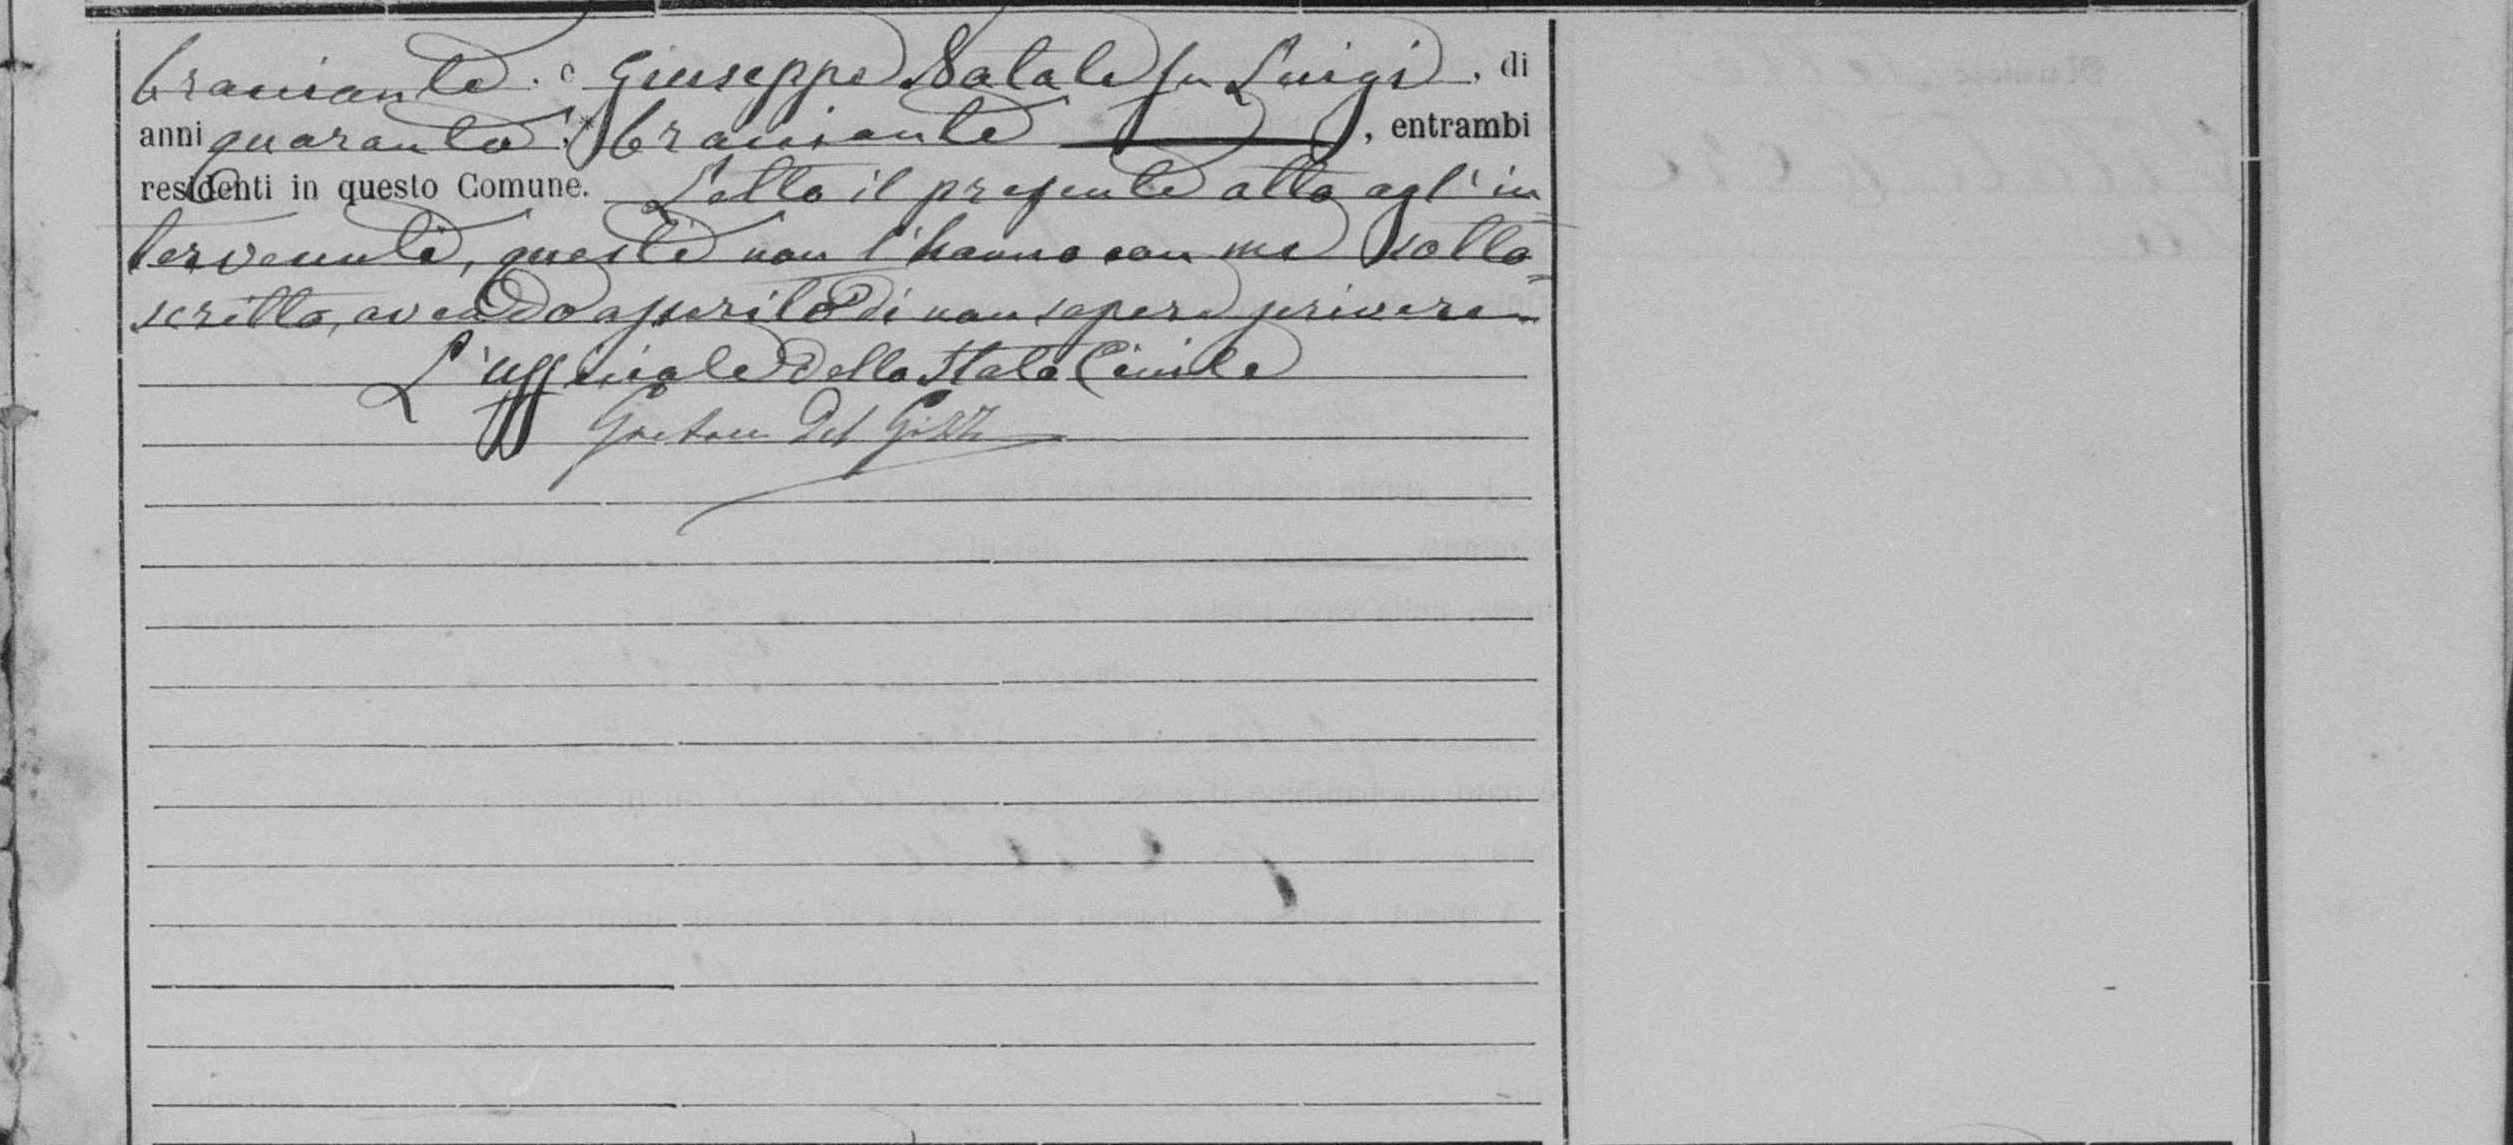 bracciante. e Giuseppe Natale fu Luigi, di
anni quaranta bracciante, entrambi
residenti in questo Comune. Letto il presente atto agl'in
tervenuti, questi non l'hanno con me sotto=
scritto, avendo asserito di non sapere scrivere
L'Uffiziale dello Stato Civile
Gaetano Del